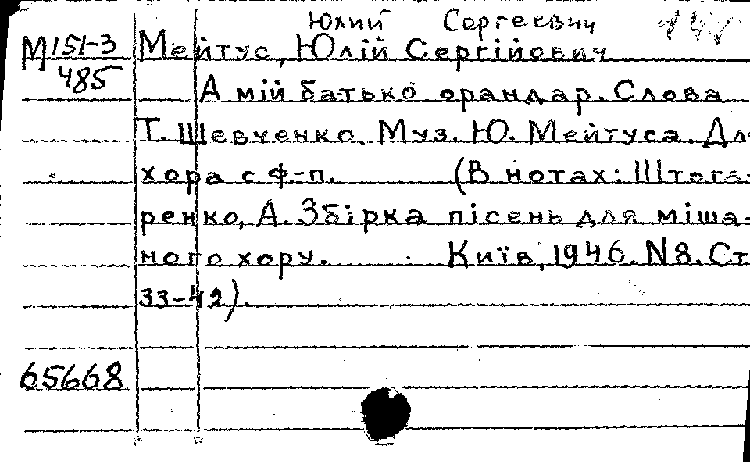 Юлий Сергеевич
М 151-3 Мейтус, Юлій Сергійович
485
А мій батько орандар. Слова
Т. Шевченко. Муз. Ю. Мейтуса. Дл
хора с ф-п. (В нотах: Штога-
ренко, А. Збірка пісень для міша-
ного хору. Київ, 1946. N8. Ст
33-42).
65668